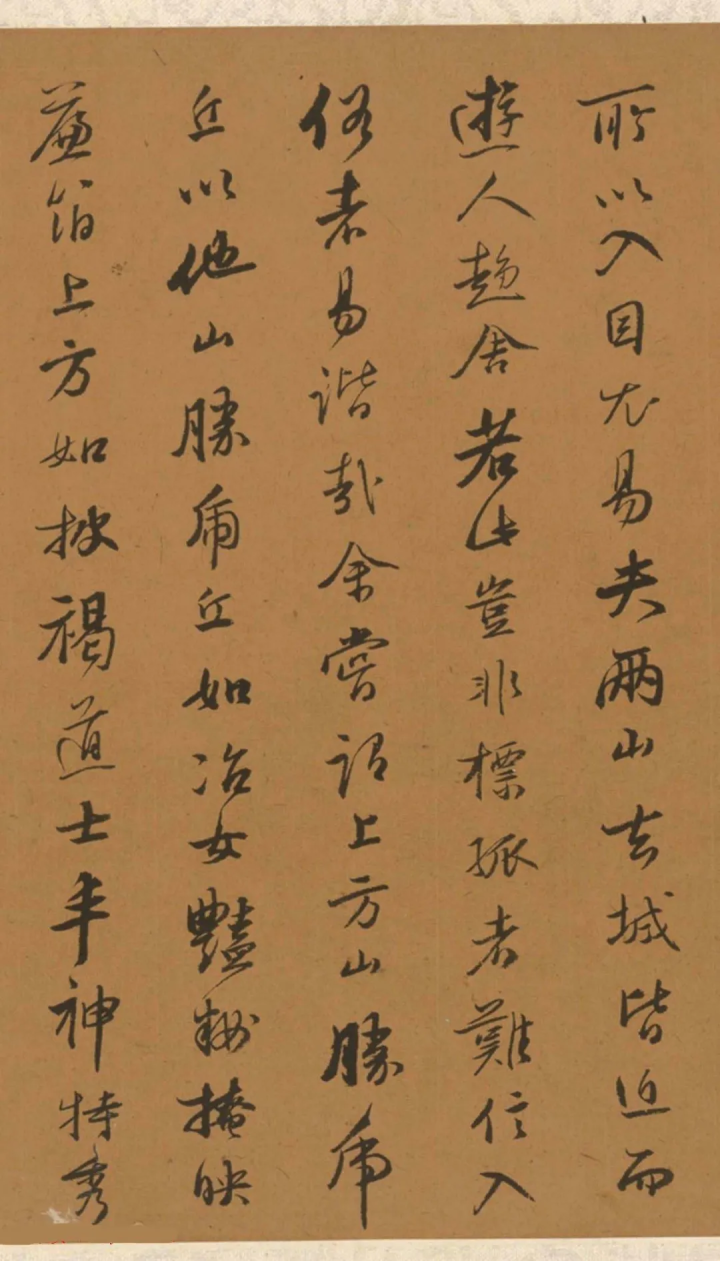 所以入目尤易夫兩山去城皆近而
遊人趨舍若此豈非標孤者難信入
俗者易諧哉余嘗謂上方山勝虎
丘以他山勝虎丘如冶女艷粧掩映
簾箔上方如披褐道士丰神特秀